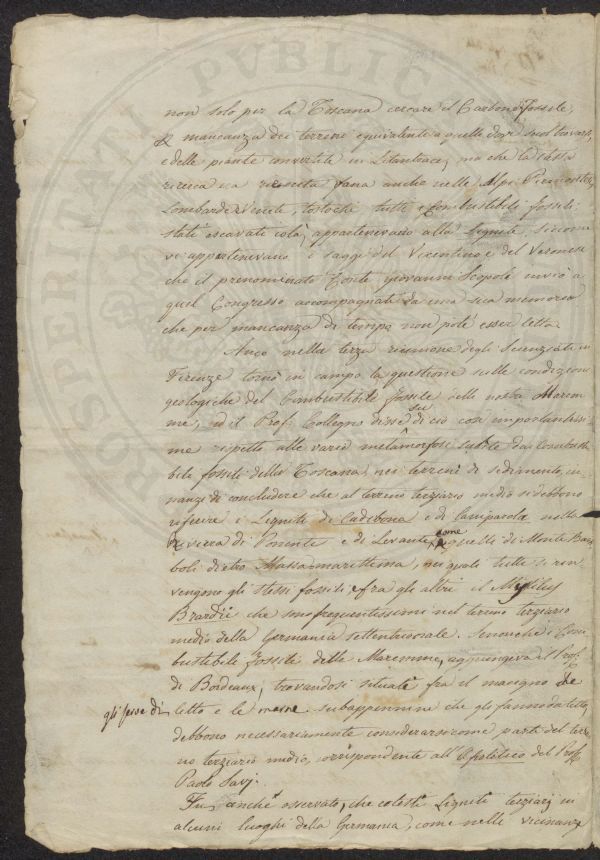 non solo per la Toscana cercare il Carbone fossile,
per mancanza dei terreni equivalenti a quelli dove
e delle piante convertite in Litantrace, ma che la stessa
ricerca sia riescita vana anche nelle Alpi Piemontesi,
Lombarde e Venete, tostochè tutti i combustibili fossili
stati escavati colà, appartenevano alla Lignite, siccome
vi appartenevano i saggi del Vicentino e del Veronese
che il prenominato Conte Giovanni Scopoli inviò a
quel Congresso accompagnati da una sua memoria
che per mancanza di tempo non potè esser letta.
Anco nella terza riunione degli Scienziati in
Firenze tornò in campo la questione sulle condizioni
geologiche del Combustibile fossile delle nostre Marem-
me, ed il Prof. Collegno disse su di ciò cose importantissi-
me rispetto alle varie metamorfosi subite dai Combusti-
bile fossili della Toscana, nei terreni di sedimento, in-
nanzi di concludere che al terreno terziario medio si debbono
riferire i Ligniti di Cadibona e di Caniparola nella
Riviera di Ponente e di Levante, come quelli di Monte Bam-
boli dietro Massa marittima, nei quali tutti si rin-
vengono gli stessi fossili, e fra gli altri il Mytilus
Brardii che sono frequentissimi nel terreno terziario
medio della Germania settentrionale. Senonchè i Com-
bustibile fossili delle Maremme, aggiungeva il Prof.
di Bordeaux, trovandosi situati fra il macigno che
gli serve di letto e le marne subappennine che gli fanno da tetto,
debbono necessariamente considerarsi come parte del terre-
no terziario medio, corrispondente all' Ofiolitico del Prof.
Paolo Savj.
Fu anche osservato, che coteste Ligniti terziarj in
alcuni luoghi della Germania, come nelle vicinanze
PROSPERITATI PVBLIC